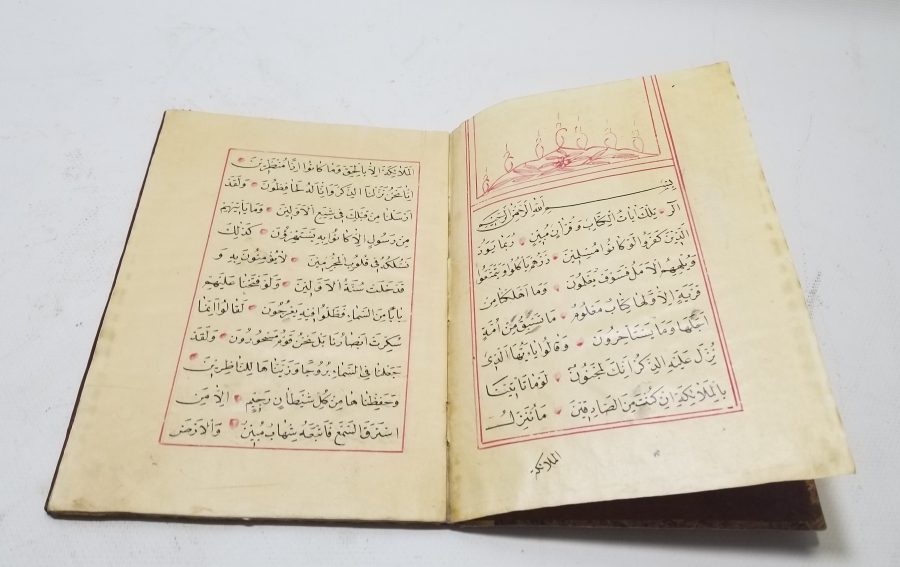 بسم الله الرحمن الرحيم
الر تِلْكَ اٰيَاتُ الْكِتَابِ وَقُرْاٰنٍ مُبٖينٍ رُبَمَا يَوَدُّ
الَّذٖينَ كَفَرُوا لَوْ كَانُوا مُسْلِمٖينَ ذَرْهُمْ يَأْكُلُوا وَيَتَمَتَّعُوا
وَيُلْهِهِمُ الْاَمَلُ فَسَوْفَ يَعْلَمُونَ وَمَا اَهْلَكْنَا مِنْ
قَرْيَةٍ اِلَّا وَلَهَا كِتَابٌ مَعْلُومٌ مَا تَسْبِقُ مِنْ اُمَّةٍ
اَجَلَهَا وَمَا يَسْتَأْخِرُونَ وَقَالُوا يَا اَيُّهَا الَّذٖي
نُزِّلَ عَلَيْهِ الذِّكْرُ اِنَّكَ لَمَجْنُونٌ لَوْمَا تَأْتٖينَا
بِالْمَلٰئِكَةِ اِنْ كُنْتَ مِنَ الصَّادِقٖينَ مَا نُنَزِّلُ
الملائكة
الْمَلٰئِكَةَ اِلَّا بِالْحَقِّ وَمَا كَانُوا اِذًا مُنْظَرٖينَ
اِنَّا نَحْنُ نَزَّلْنَا الذِّكْرَ وَاِنَّا لَهُ لَحَافِظُونَ وَلَقَدْ
اَرْسَلْنَا مِنْ قَبْلِكَ فٖي شِيَعِ الْاَوَّلٖينَ وَمَا يَأْتٖيهِمْ
مِنْ رَسُولٍ اِلَّا كَانُوا بِهٖ يَسْتَهْزِؤُنَ كَذٰلِكَ
نَسْلُكُهُ فٖي قُلُوبِ الْمُجْرِمٖينَ لَا يُؤْمِنُونَ بِهٖ وَ
قَدْ خَلَتْ سُنَّةُ الْاَوَّلٖينَ وَلَوْ فَتَحْنَا عَلَيْهِمْ
بَابًا مِنَ السَّمَاءِ فَظَلُّوا فٖيهِ يَعْرُجُونَ لَقَالُوا اِنَّمَا
سُكِّرَتْ اَبْصَارُنَا بَلْ نَحْنُ قَوْمٌ مَسْحُورُونَ وَلَقَدْ
جَعَلْنَا فِي السَّمَاءِ بُرُوجًا وَزَيَّنَّاهَا لِلنَّاظِرٖينَ
وَحَفِظْنَاهَا مِنْ كُلِّ شَيْطَانٍ رَجٖيمٍ اِلَّا مَنِ
اسْتَرَقَ السَّمْعَ فَاَتْبَعَهُ شِهَابٌ مُبٖينٌ وَالْاَرْضَ